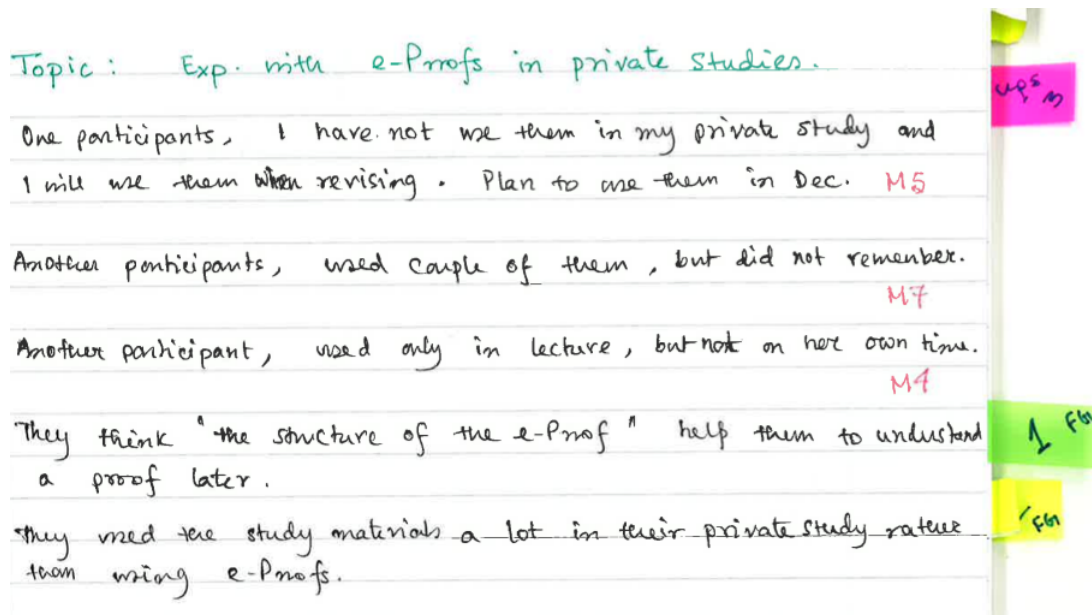 Topic : Exp. with e-Proofs in private studies.
One participants, I have not use them in my private study and
I will use them when revising. Plan to use them in Dec. M5
Another participants, used couple of them, but did not remember.
M7
Another participant, used only in lecture, but not on her own time.
M4
They think "the structure of the e-Proof" help them to understand
a proof later.
They used the study materials a lot in their private study rather
than using e-Proofs.
ups 3
1 FG1
FG1